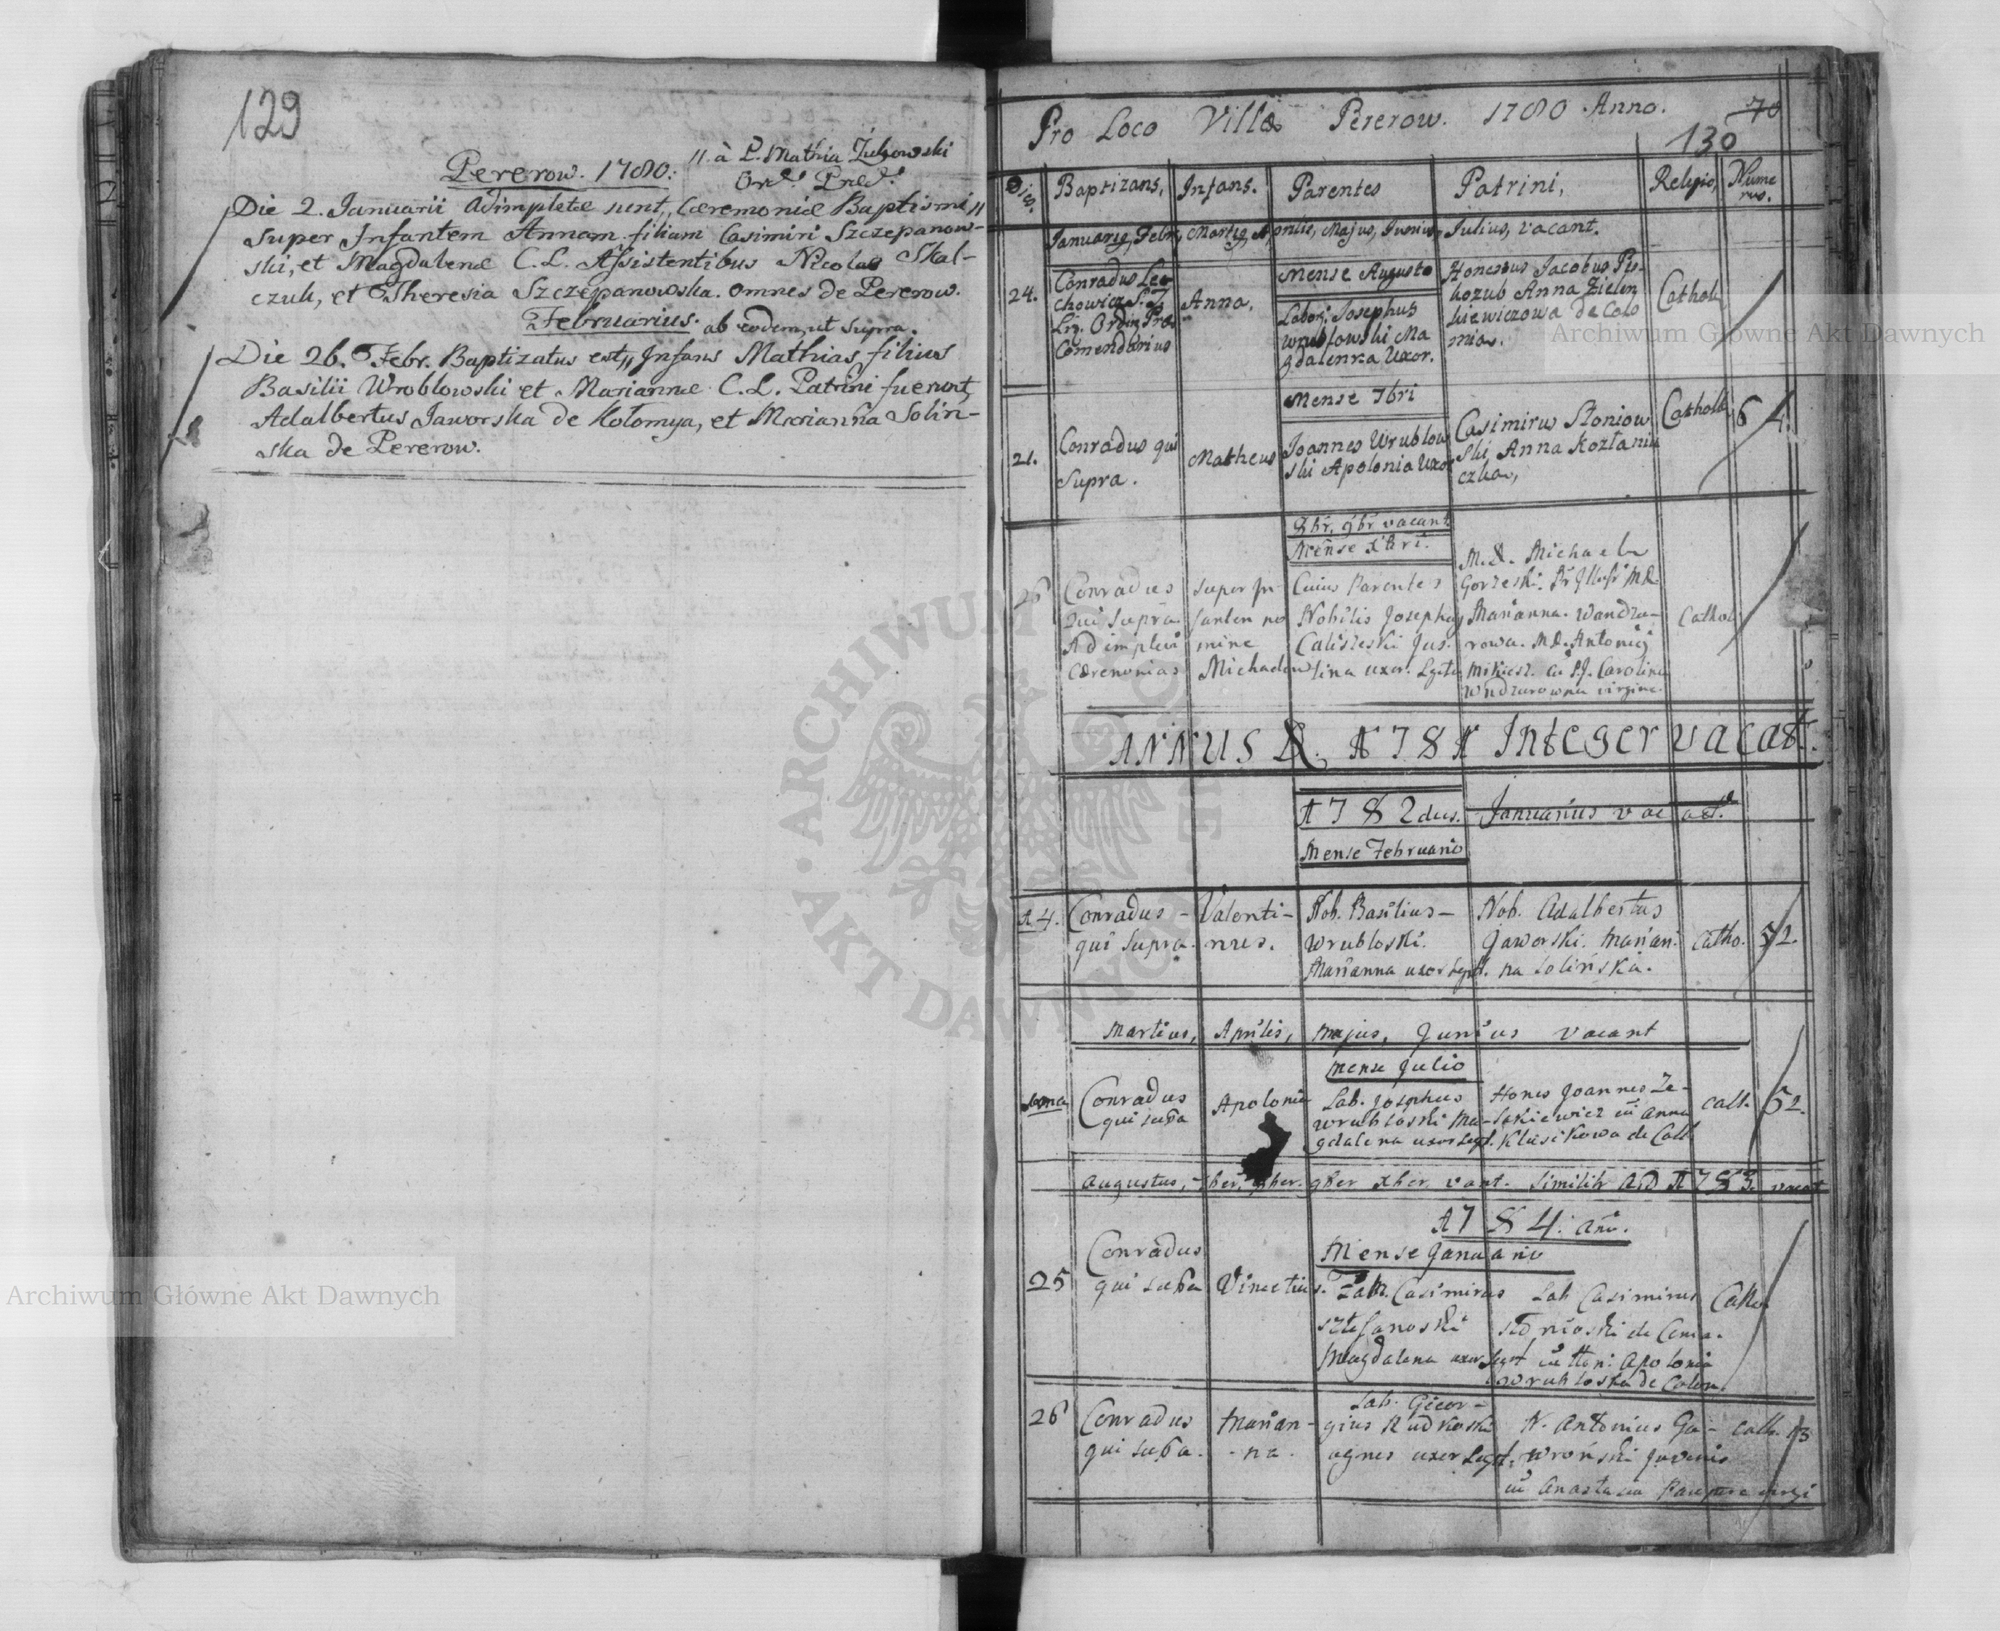 129
Pererow. 1780. || à P. Mathia Żukowski
Ord. Præd.
Die 2. Januarii adimpletæ sunt, Cæremoniæ Baptismi ||
super Infantem Annam filiam Casimiri Szczepanow-
ski, et Magdalenæ C. L. Assistentibus Nicolao Skal-
czuk, et Theresia Szczepanowska. omnes de Pererow.
Februarius. ab eodem, ut supra.
Die 26. Febr. Baptizatus est, Infans Mathias filius
Basilii Wroblowski et Mariannæ C. L. Patrini fuerunt,
Adalbertus Jaworska de Kołomya, et Marianna Solin-
ska de Pererow.
Pro Loco Villæ Pererow. 1780 Anno. 70
130
Dies. Baptizans, Infans. Parentes Patrini, Religio, Nume
rus.
Januariq, Febr, Martiq, Aprilis, Majus, Junius, Julius, vacant.
24. Conradus Le
chowicz S. T.
Ord. Præ
Comendarius
Anna,
Mense Augusto
Labor. Josephus
Wrublowski Ma
gdalenna Uxor.
Honestus Jacobus Pis
kozub Anna Zielen
kiewiczowa de Colo
mia.
Cathol.
Mense 7bri
21. Conradus qui
supra.
Matheus
Joannes Wrublow
ski Apolonia Uxor
Casimirus Słoniow
ski Anna Kozłania
czka,
Cathol. 6 4.
8br, 9br vacant
Mense Xbri.
26 Conradus
qui supra.
Adimplevi
Cærenonias
super In
fantem no
mine
Michaelem
Cuius Parentes
Nobilis Josephus
Calisieski Jus-
tina uxor. Lgta
M. D. Michaele
Gorzeski.
Marianna. Wandzu-
rowa. M.D. Antonij
Carolina
Wndzurowna virgine.
Cathol.
ANNUS D. 1781 Integer vacat.
1782dus. Januarius vacat.
Mense Februario
14. Conradus -
qui supra.
Valenti-
nus.
Nob. Basilius -
Wrubloski.
Marianna uxor Legt.
Nob. Adalbertus
Jaworski. Marian.
na Solińska.
Catho. 52.
Martius, Aprilis, Majus, Junius vacant
Mense Julio
Conradus
qui supa
Apolonia
Lab. Josephus
Wrubloski Ma-
gdalena uxor Legt.
Hones Joannes Ze-
lskiewicz cu Anna
Klusikowa de Coll
Cath. 52.
Augustus, 7ber, 8ber. 9ber xber vant. similit Ad 1783. vacat
1784. Ano.
Mense Januario
25 Conradus
qui supa
Vincetius.
Lab. Casimirus
Sztefanoski
Magdalena uxor Legt
Lab Casimirus
de Cenia.
cu Hon: Apolonia
Wrubloska de Colom.
Catho.
26 Conradus
qui supa.
Marian-
- na.
Lab. Gieor-
gius Rudkoski
Agnes uxor Legt.
N. Antonius Ga-
wroński Juvenis
cu Anastasia
Cath. 13
Archiwum Główne Akt Dawnych
Archiwum Główne Akt Dawnych
ARCHIWUM GŁÓWNE · AKT DAWNYCH ·